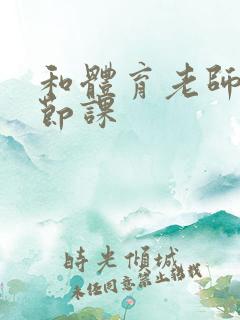 和體育老師
節課
時光傾城
未經同意禁止轉載